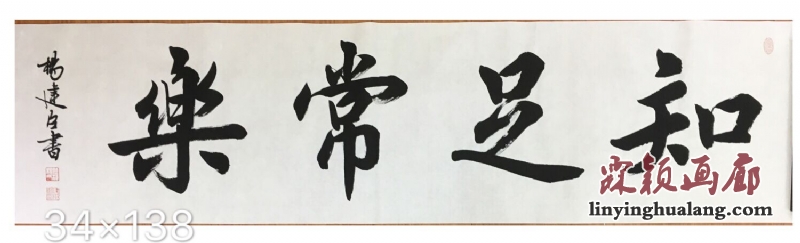 知足常樂
杨建臣書
34×138
霖颖画廊
linyinghualang.com